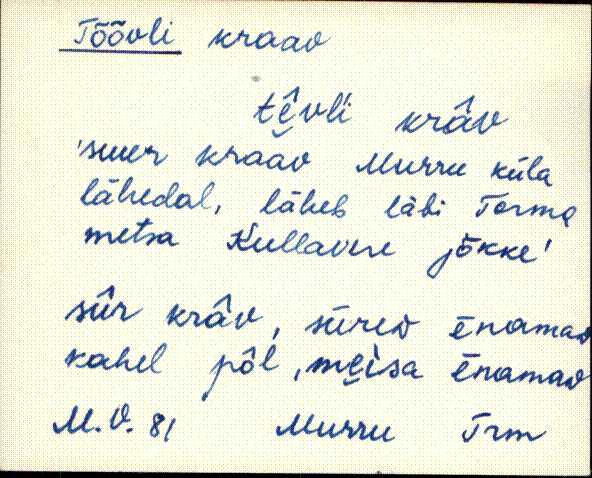 Töövli kraav
tȇvl'i krâv
'suur kraav Murru küla
lähedal, läheb läbi Torma
metsa Kullavere jõkke'
sûr krâv, sūred ēnamad
kahel pôl, mȩìsa ēnamad
M.V. 81 Murru Trm